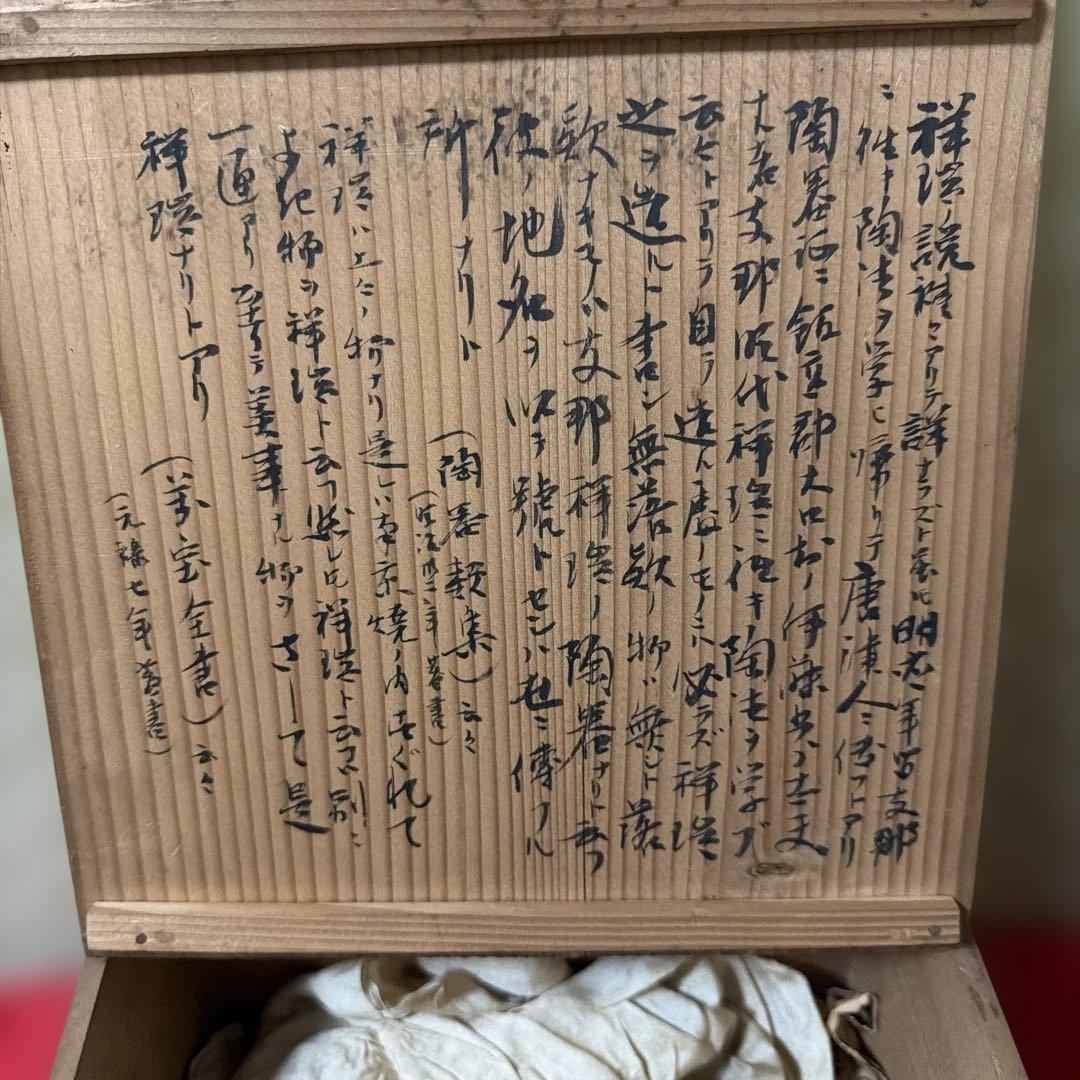 祥瑞ノ説種々アリテ詳ナラズト雖モ明応年留支那
ニ往キ陶法ヲ学ヒ帰リテ唐津人ニ傳フトアリ
陶器証ニ飯高郡大口村ノ伊藤 五良太夫
ナル者支那明代祥瑞ニ往キ陶法ヲ学ブ
云々トアリテ自ラ造ル處ノモノニ必ラズ祥瑞
之ヲ造ルト書ロシ無落款ノ物ハ無シト落
款ナキモノハ支那祥瑞ノ陶器ナリト云フ
彼ノ地名ヲ以キ號トセシハ世ニ傳フル
所ナリト
(陶器類集)云々
年 著書)
祥瑞ハ上々ノ物ナリ是レハ古キ京焼ノ内すぐれて
よき物ヲ祥瑞ト云フ然レ共祥瑞ト云フハ別ニ
一通アリ至テ美事ナル物ヲさして是
祥瑞ナリトアリ
(萬宝全書)云々
(元禄七年著書)